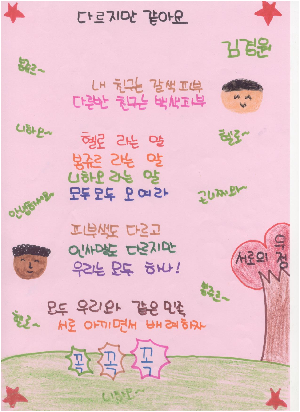 다르지만 같아요
김경원
내 친구는 갈색피부
다른반 친구는 백색피부
니하오~
헬로~
헬로 라는 말
봉쥬르 라는 말
니하오 라는 말
모두모두 모여라
안녕하세요
곤니찌와~
피부색도 다르고
인사말도 다르지만
우리는 모두 하나!
서로의
우정
모두 우리와 같은 민족
서로 아끼면서 배려하자
헬로~
꼭 꼭 꼭
니하오~